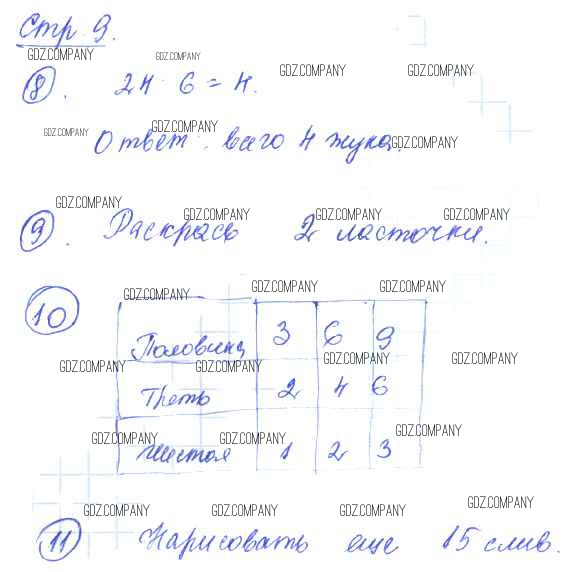 Стр. 9.
GDZ.COMPANY GDZ.COMPANY
GDZ.COMPANY GDZ.COMPANY
8. 24 : 6 = 4.
GDZ.COMPANY GDZ.COMPANY GDZ.COMPANY
Ответ: всего 4 жука.
GDZ.COMPANY GDZ.COMPANY GDZ.COMPANY GDZ.COMPANY
9. Раскрась 2 ласточки.
GDZ.COMPANY GDZ.COMPANY GDZ.COMPANY
10
Половина 3 6 9
GDZ.COMPANY GDZ.COMPANY GDZ.COMPANY GDZ.COMPANY
Треть 2 4 6
GDZ.COMPANY GDZ.COMPANY GDZ.COMPANY
Шестая 1 2 3
GDZ.COMPANY GDZ.COMPANY GDZ.COMPANY GDZ.COMPANY
11 Нарисовать еще 15 слив.